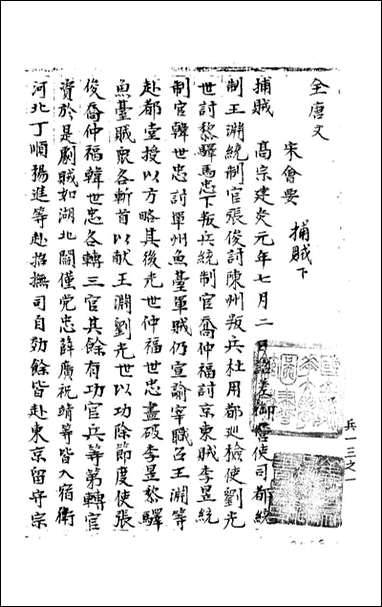 全唐文
宋會要
捕賊下
捕賊 髙宗建炎元年七月二日詔差御營使司都統
制王淵統制官張俊討陳州叛兵杜用都巡檢使劉光
世討黎驛馬忠下叛兵統制官喬仲福討京東賊李昱統
制官韓世忠討單州魚臺軍賊仍宣諭宰職召王淵等
赴都堂授以方略其後光世仲福世忠盡破李昱黎驛
魚臺賊衆各斬首以献王淵劉光世以功除節度使張
俊喬仲福韓世忠各轉三官其餘有功官兵等苐轉官
資於是劇賊如湖北閻僅党忠薛廣祝靖等皆入宿衛
河北丁順楊進等赴招撫司自効餘皆赴東京留守宗
兵一三之一